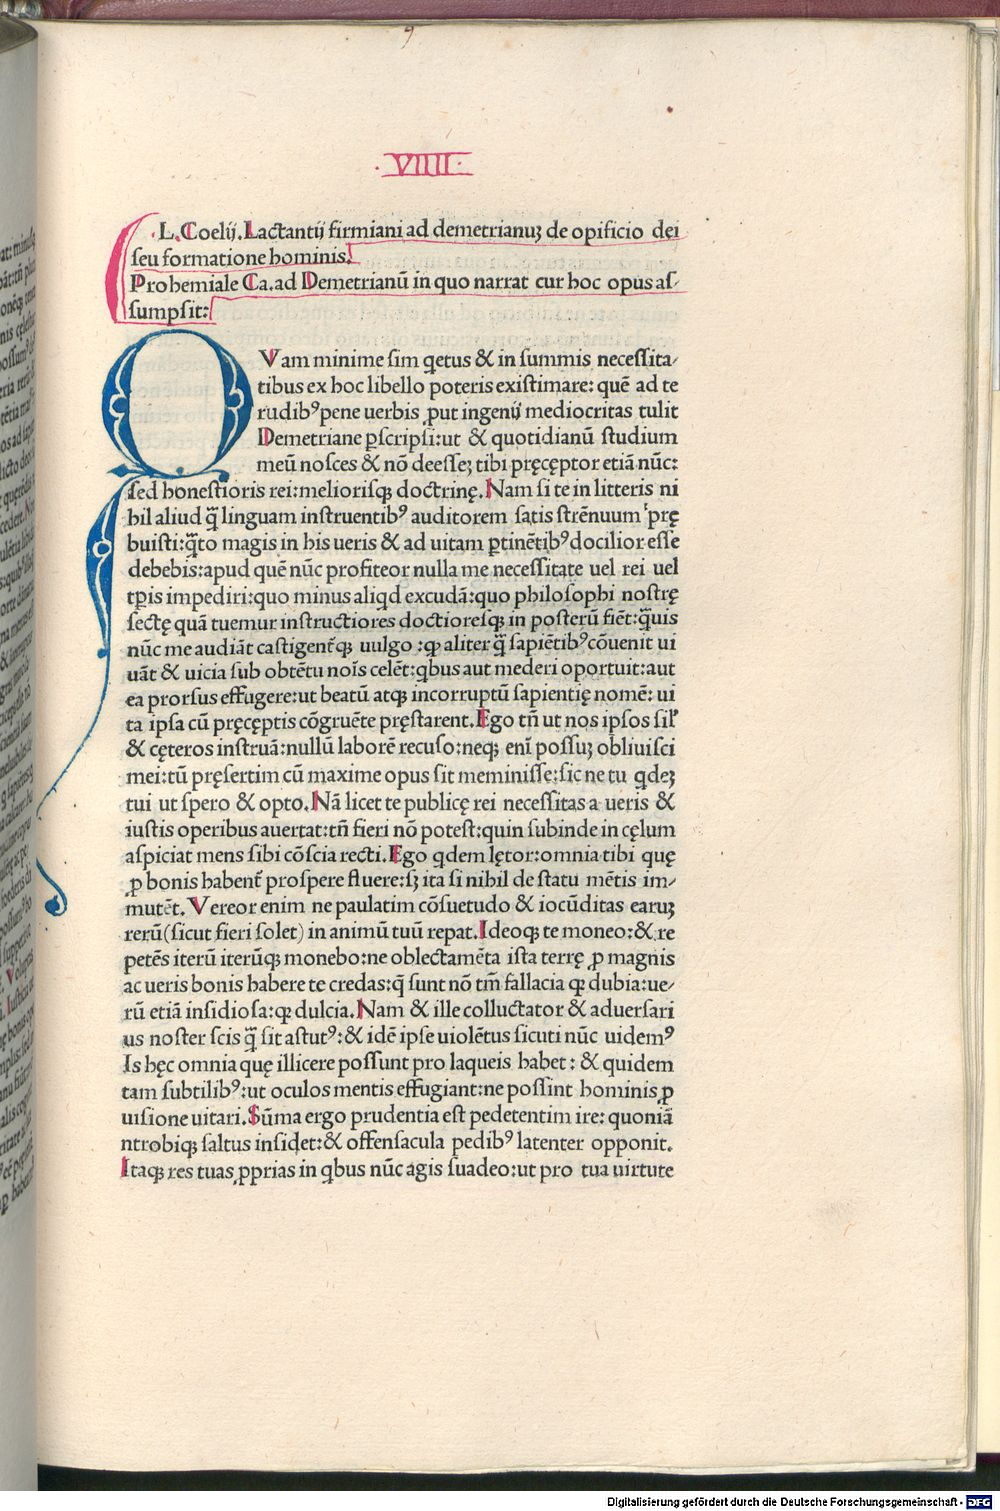 ·VIIII·
L. Coelij. Lactantij firmiani ad demetrianuʒ de opificio dei
seu formatione hominis.
Prohemiale Ca. ad Demetrianū in quo narrat cur hoc opus as⸗
sumpsit:
QVam minime sim q̇etus & in summis necessita⸗
tibus ex hoc libello poteris existimare: quē ad te
rudibꝰ pene uerbis ꝓut ingenij mediocritas tulit
Demetriane ꝑscripsi: ut & quotidianū studium
meū nosces & nō deesseʒ tibi pręcęptor etiā nūc:
sed honestioris rei: meliorisqꝫ doctrinę. Nam si te in litteris ni
hil aliud q̄ linguam instruentibꝰ auditorem satis strēnuum prę
buisti: q̄to magis in his ueris & ad uitam ꝑtinētibꝰ docilior esse
debebis: apud quē nūc profiteor nulla me necessitate uel rei uel
tꝑis impediri: quo minus aliqd excudā: quo philosophi nostrę
sectę quā tuemur instructiores doctioresqꝫ in posterū fiēt: q̄uis
nūc me audiāt castigent̄qꝫ uulgo: ꝙ aliter q̄ sapiētibꝰ cōuenit ui
uāt & uicia sub obtētu noīs celēt: qbus aut mederi oportuit: aut
ea prorsus effugere: ut beatū atqꝫ incorruptū sapientię nomē: ui
ta ipsa cū pręcęptis cōgruēte pręstarent. Ego tn̄ ut nos ipsos sil̓
& cęteros instruā: nullū laborē recuso: neqꝫ enī possuʒ obliuisci
mei: tū pręsertim cū maxime opus sit meminisse: sic ne tu qdeʒ
tui ut spero & opto. Nā licet te publicę rei necessitas a ueris &
iustis operibus auertat: tn̄ fieri nō potest: quin subinde in cęlum
aspiciat mens sibi cōscia recti. Ego qdem lętor: omnia tibi quę
ꝓ bonis habent̄ prospere fluere: sʒ ita si nihil de statu mētis im⸗
mutēt. Vereor enim ne paulatim cōsuetudo & iocūditas earuʒ
rerū (sicut fieri solet) in animū tuū repat. Ideoqꝫ te moneo: & re
petēs iterū iterūqꝫ monebo: ne oblectamēta ista terrę ꝓ magnis
ac ueris bonis habere te credas: q̄ sunt nō tm̄ fallacia qꝫ dubia: ue⸗
rū etiā insidiosa: qꝫ dulcia. Nam & ille colluctator & aduersari
us noster scis q̄ sit astutꝰ: & idē ipse uiolētus sicuti nūc uidemꝰ
Is hęc omnia quę illicere possunt pro laqueis habet: & quidem
tam subtilibꝰ: ut oculos mentis effugiant: ne possint hominis ꝓ
uisione uitari. Sūma ergo prudentia est pedetentim ire: quoniā
ntrobiqꝫ saltus insidet: & offensacula pedibꝰ latenter opponit.
Itaqꝫ res tuas ꝓprias in qbus nūc agis suadeo: ut pro tua uirtute
Digitalisierung gefördert durch die Deutsche Forschungsgemeinschaft - DFG